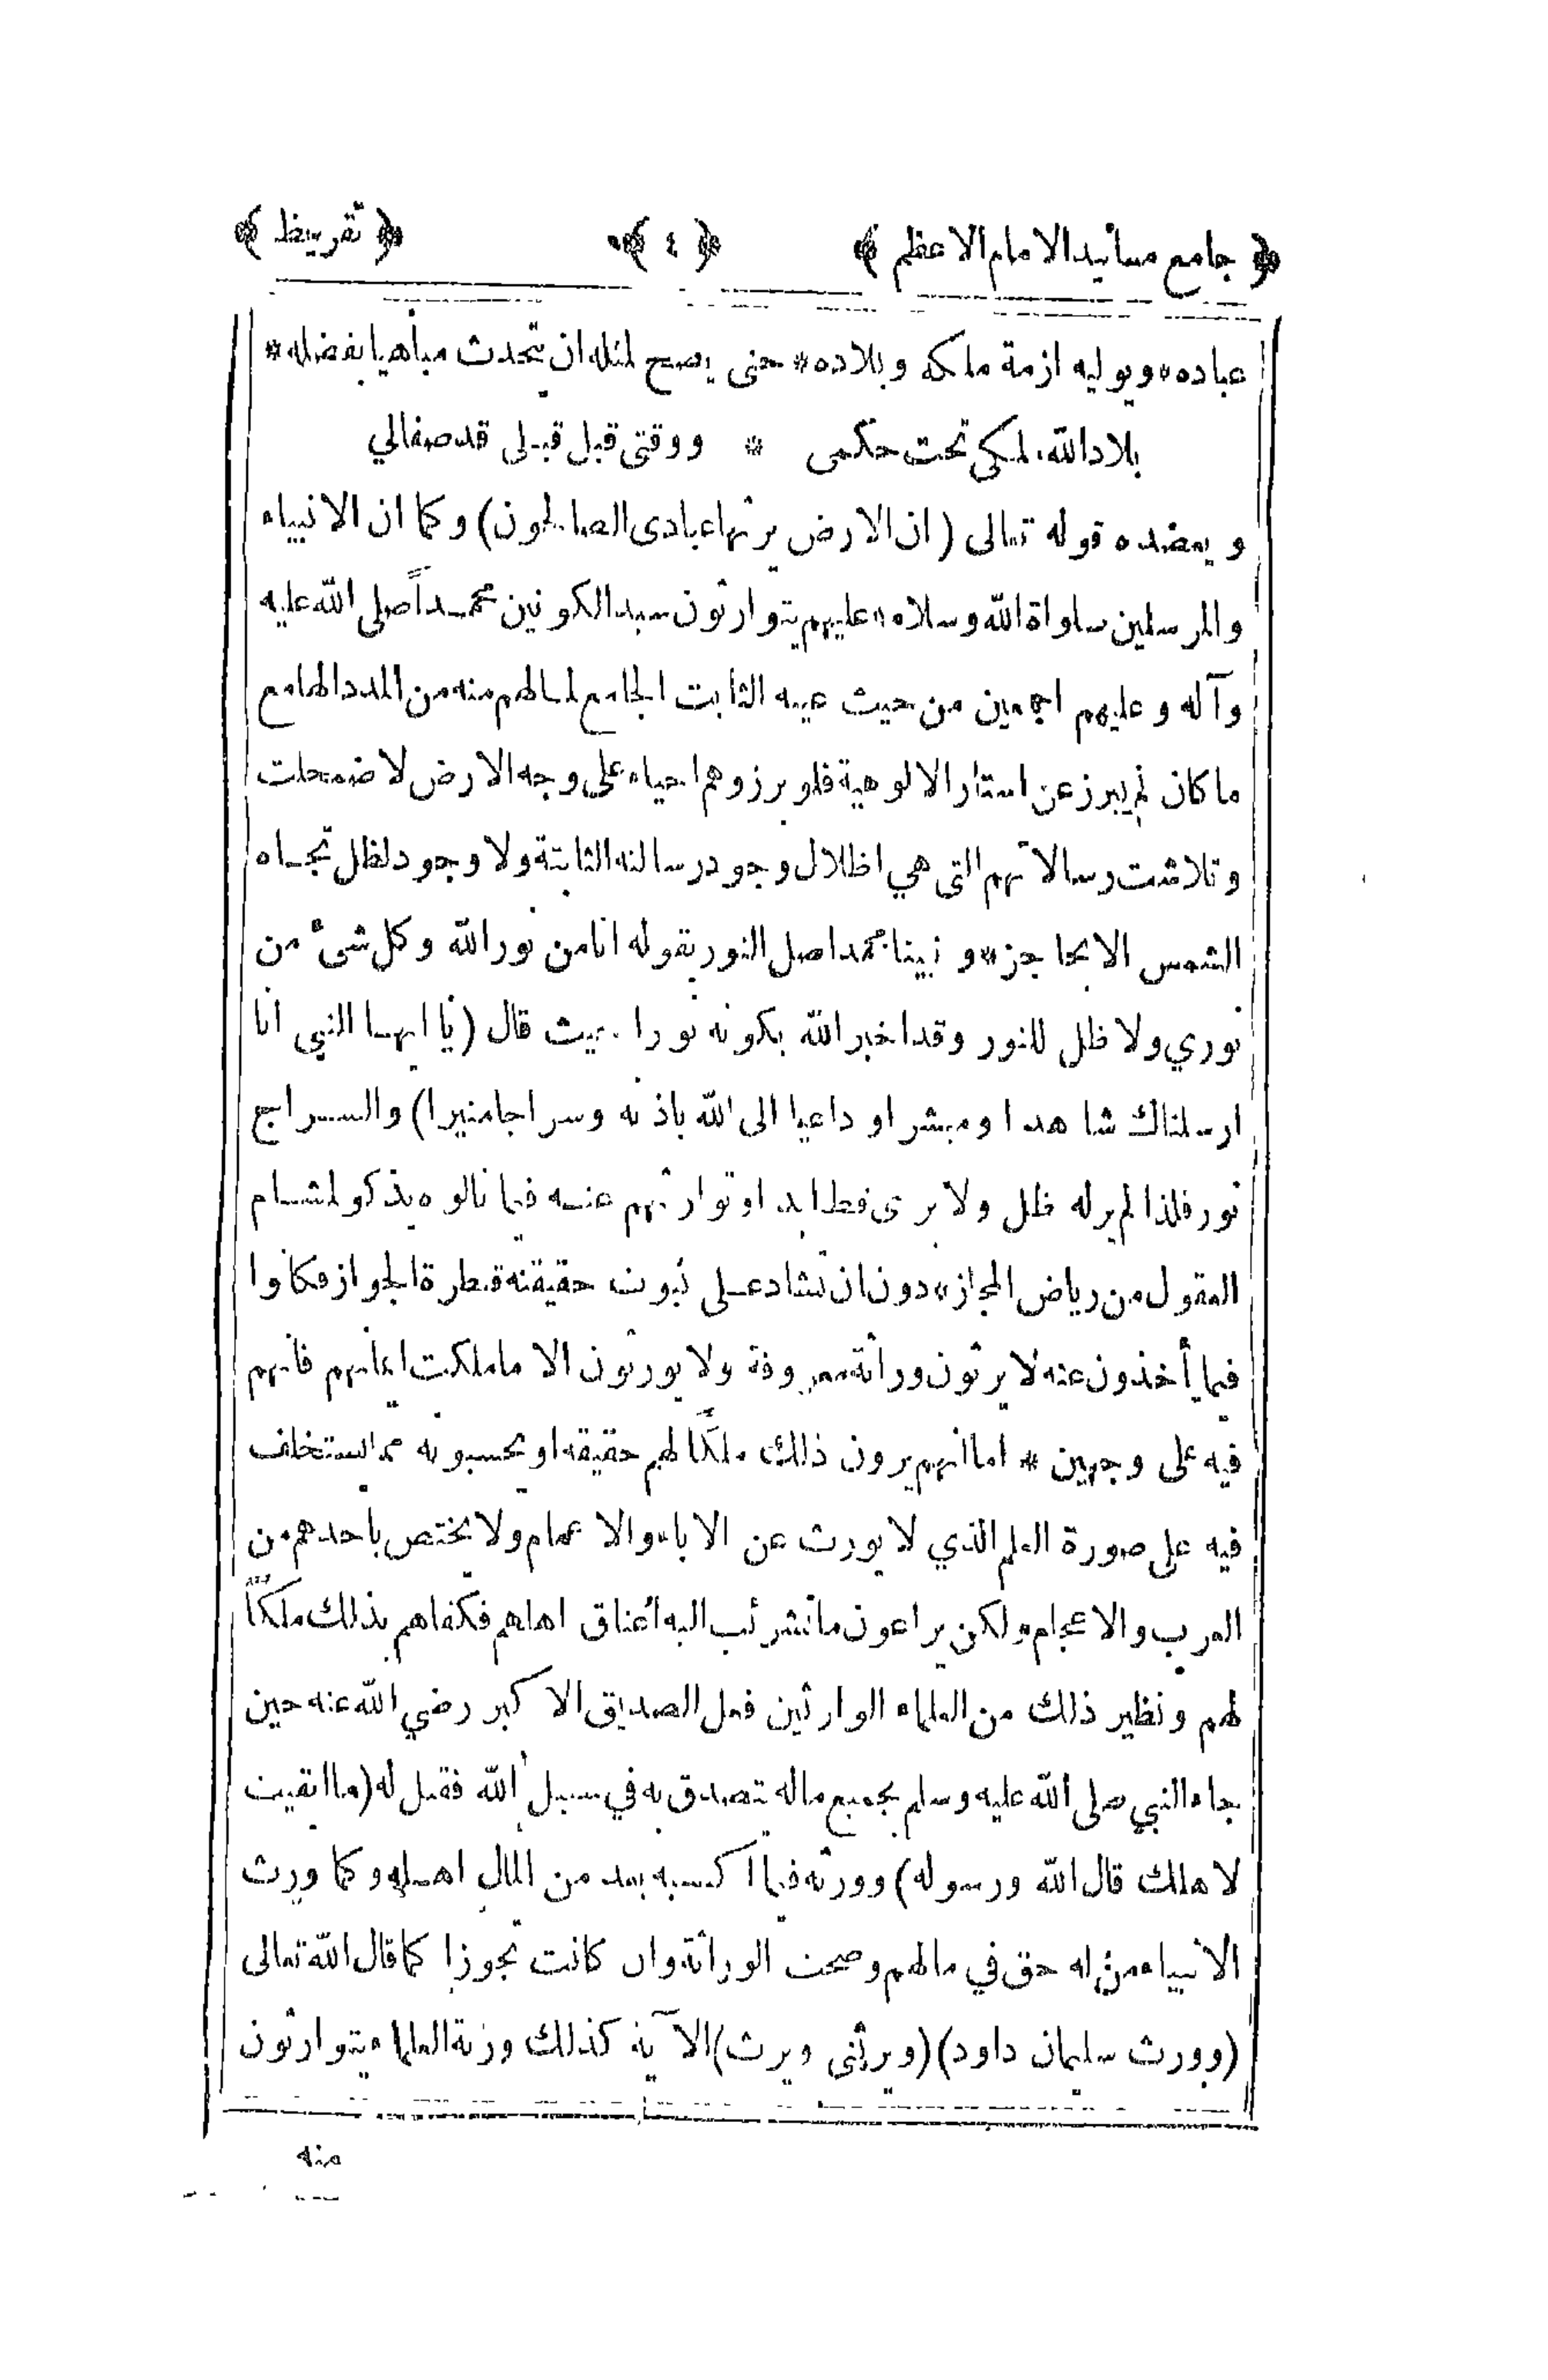 ﴿ جامع مسانيد الامام الاعظم ﴾ ﴿ ٤ ﴾ ﴿ تقريظ ﴾
عباده * ويوليه ازمة ملكه وبلاده * حتى يصح لمثله ان يتحدث مباهيا بفضله *
بلاد الله ملكى تحت حكمى * ووقتى قبل قبلى قد صفالي
ويعضده قوله تعالى (ان الارض يرثها عبادى الصالحون) وكما ان الانبياء
والمرسلين صلواة الله وسلامه عليهم يتوارثون سيد الكونين محمداً صلى الله عليه
وآله وعليهم اجمعين من حيث عينه الثابت الجامع لما لهم منه من المدد الهامع
ما كان لم يبرز عن استار الالوهية فلو برز وهم احياء على وجه الارض لاضمحلت
وتلاشت رسالاتهم التى هي اظلال وجود رسالته الثابتة ولا وجود لظل تجاه
الشمس الا بحاجز * ونبينا محمد اصل النور بقوله انا من نور الله وكل شئ من
نوري ولا ظل للنور وقد اخبر الله بكونه نورا حيث قال (يا ايها النبي انا
ارسلناك شاهدا ومبشرا وداعيا الى الله باذنه وسراجا منيرا) والسراج
نور فلذا لم ير له ظل ولا يرى قط ابدا وتوارثهم عنه فيما نالوه يذكو لمشام
العقول من رياض المجاز * دون ان تشاد على ثبوت حقيقته قطرة الجواز فكانوا
فيما يأخذون عنه لا يرثون وراثة معروفة ولا يورثون الا ما ملكت ايمانهم فانهم
فيه على وجهين * اما انهم يرون ذلك ملكاً لهم حقيقه او يحسبونه مما استخلف
فيه على صورة العلم الذي لا يورث عن الاباء والاعمام ولا يختص باحدهم من
العرب والاعجام ولكن يراعون ما تشرئب اليه اعناق اهلهم فكفاهم بذلك ملكاً
لهم ونظير ذلك من العلماء الوارثين فعل الصديق الاكبر رضي الله عنه حين
جاء النبي صلى الله عليه وسلم بجميع ماله تصدق به في سبيل الله فقيل له (ما ابقيت
لاهلك قال الله ورسوله) وورثه فيما اكسبه بعد من المال اهله وكما ورث
الانبياء من له حق في مالهم وصحت الوراثة وان كانت تجوزا كما قال الله تعالى
(وورث سليمان داود) (ويرثنى ويرث) الآية كذلك ورثة العلماء يتوارثون
منه